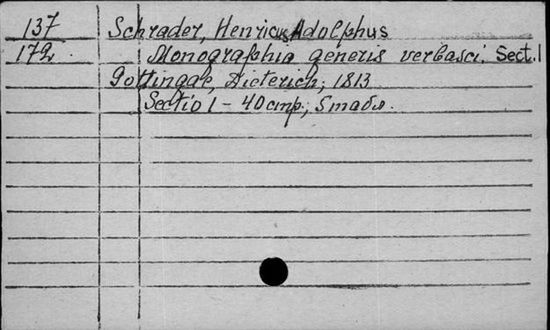 137 Schrader, Henricus Adolphus
172. Monographia generis verbasci. Sect. 1
Gottingae, Dieterich, 1813
Sectio 1 - 40 стр., 5 табл.